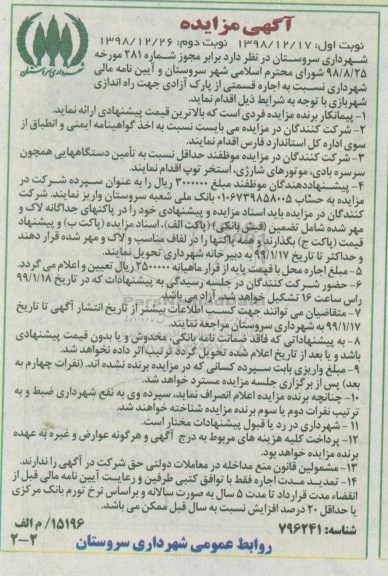 آگهی مزایده
نوبت اول: ۱۳۹۸/۱۲/۱۷ نوبت دوم: ۱۳۹۸/۱۲/۲۶
شهرداری سروستان
شهرداری سروستان در نظر دارد برابر مجوز شماره ۲۸۱ مورخه
۹۸/۸/۲۵ شورای محترم اسلامی شهر سروستان و آیین نامه مالی
شهرداری نسبت به اجاره قسمتی از پارک آزادی جهت راه اندازی
شهربازی با توجه به شرایط ذیل اقدام نماید.
۱- پیمانکار برنده مزایده فردی است که بالاترین قیمت پیشنهادی ارائه نماید.
۲- شرکت کنندگان در مزایده می بایست نسبت به اخذ گواهینامه ایمنی و انطباق از
سوی اداره کل استاندارد فارس اقدام نمایند.
۳- شرکت کنندگان در مزایده موظفند حداقل نسبت به تأمین دستگاههایی همچون
سرسره بادی، موتورهای شارژی، استخر توپ اقدام نمایند.
۴- پیشنهاددهندگان موظفند مبلغ ۳۰۰۰۰۰۰ ریال را به عنوان سپرده شرکت در
مزایده به حساب ۰۱۰۶۷۳۹۸۵۸۰۰۵ بانک ملی شعبه سروستان واریز نمایند. شرکت
کنندگان در مزایده باید اسناد مزایده و پیشنهادی خود را در پاکتهای جداگانه لاک و
مهر شده شامل تضمین (فیش بانکی) (پاکت الف)، اسناد مزایده (پاکت ب) و پیشنهاد
قیمت (پاکت ج) بگذارند و همه پاکتها را در لفاف مناسب و لاک و مهر شده قرار دهند
و حداکثر تا تاریخ ۹۹/۱/۱۷ به دبیرخانه شهرداری تحویل نمایند.
۵- مبلغ اجاره محل با قیمت پایه از قرار ماهیانه ۲۵۰۰۰۰۰ ریال تعیین و اعلام می گردد.
۶- حضور شرکت کنندگان در جلسه رسیدگی به پیشنهادات که در تاریخ ۹۹/۱/۱۸
راس ساعت ۱۶ تشکیل خواهد شد، آزاد می باشد.
۷- متقاضیان می توانند جهت کسب اطلاعات بیشتر از تاریخ انتشار آگهی تا تاریخ
۹۹/۱/۱۷ به شهرداری سروستان مراجعه نمایند.
۸- به پیشنهاداتی که فاقد ضمانت نامه بانکی، مخدوش و یا بدون قیمت پیشنهادی
باشد و یا بعد از تاریخ اعلام شده تحویل گردد ترتیب اثر داده نخواهد شد.
۹- مبلغ واریزی بابت سپرده کسانی که در مزایده برنده نشده اند. (نفرات چهارم به
بعد) پس از برگزاری جلسه مزایده مسترد خواهد شد.
۱۰- چنانچه برنده مزایده اعلام انصراف نماید، سپرده وی به نفع شهرداری ضبط و به
ترتیب نفرات دوم یا سوم برنده مزایده شناخته خواهند شد.
۱۱- شهرداری در رد یا قبول پیشنهادات مختار است.
۱۲- پرداخت کلیه هزینه های مربوط به درج آگهی و هرگونه عوارض و غیره به عهده
برنده مزایده خواهد بود.
۱۳- مشمولین قانون منع مداخله در معاملات دولتی حق شرکت در آگهی را ندارند.
۱۴- تمدید مدت اجاره فقط با توافق کتبی طرفین و رعایت آیین نامه مالی قبل از
انقضاء مدت قرارداد تا مدت ۵ سال به صورت سالانه و براساس نرخ تورم بانک مرکزی
یا حداقل ۲۰ درصد افزایش نسبت به سال قبل ممکن می باشد.
شناسه: ۷۹۶۲۴۱ ۱۵۱۹۶/م الف
روابط عمومی شهرداری سروستان ۲-۲